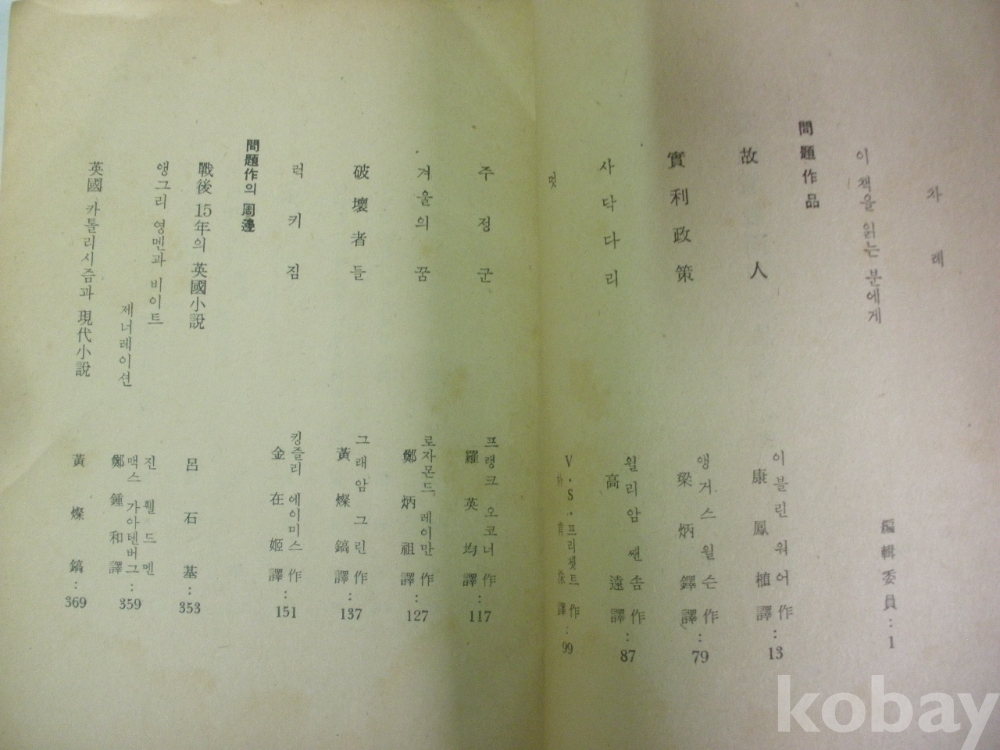 차례
이 책을 읽는 분에게 編輯委員 : 1
問題作品
故人 이블린 워어 作 康鳳植 譯 : 13
實利政策 앵거스 윌슨 作 梁炳鐸 譯 : 79
사닥다리 윌리암 쌘솜 作 高遠 譯 : 87
V·S·프리쳇트 作 譯 : 99
주정군 프랭크 오코너 作 羅英均 譯 : 117
겨울의 꿈 로자몬드 레이만 作 鄭炳祖 譯 : 127
破壞者들 그래암 그린 作 黃燦鎬 譯 : 137
럭키 짐 킹즐리 에이미스 作 金在姬 譯 : 151
問題作의 周邊
戰後 15年의 英國小說 呂石基 : 353
앵그리 영멘과 비이트
제너레이션 진 휄드멘
맥스 가아텐버그
鄭鍾和 譯 : 359
英國 카톨리시즘과 現代小說 黃燦鎬 : 369
kobay